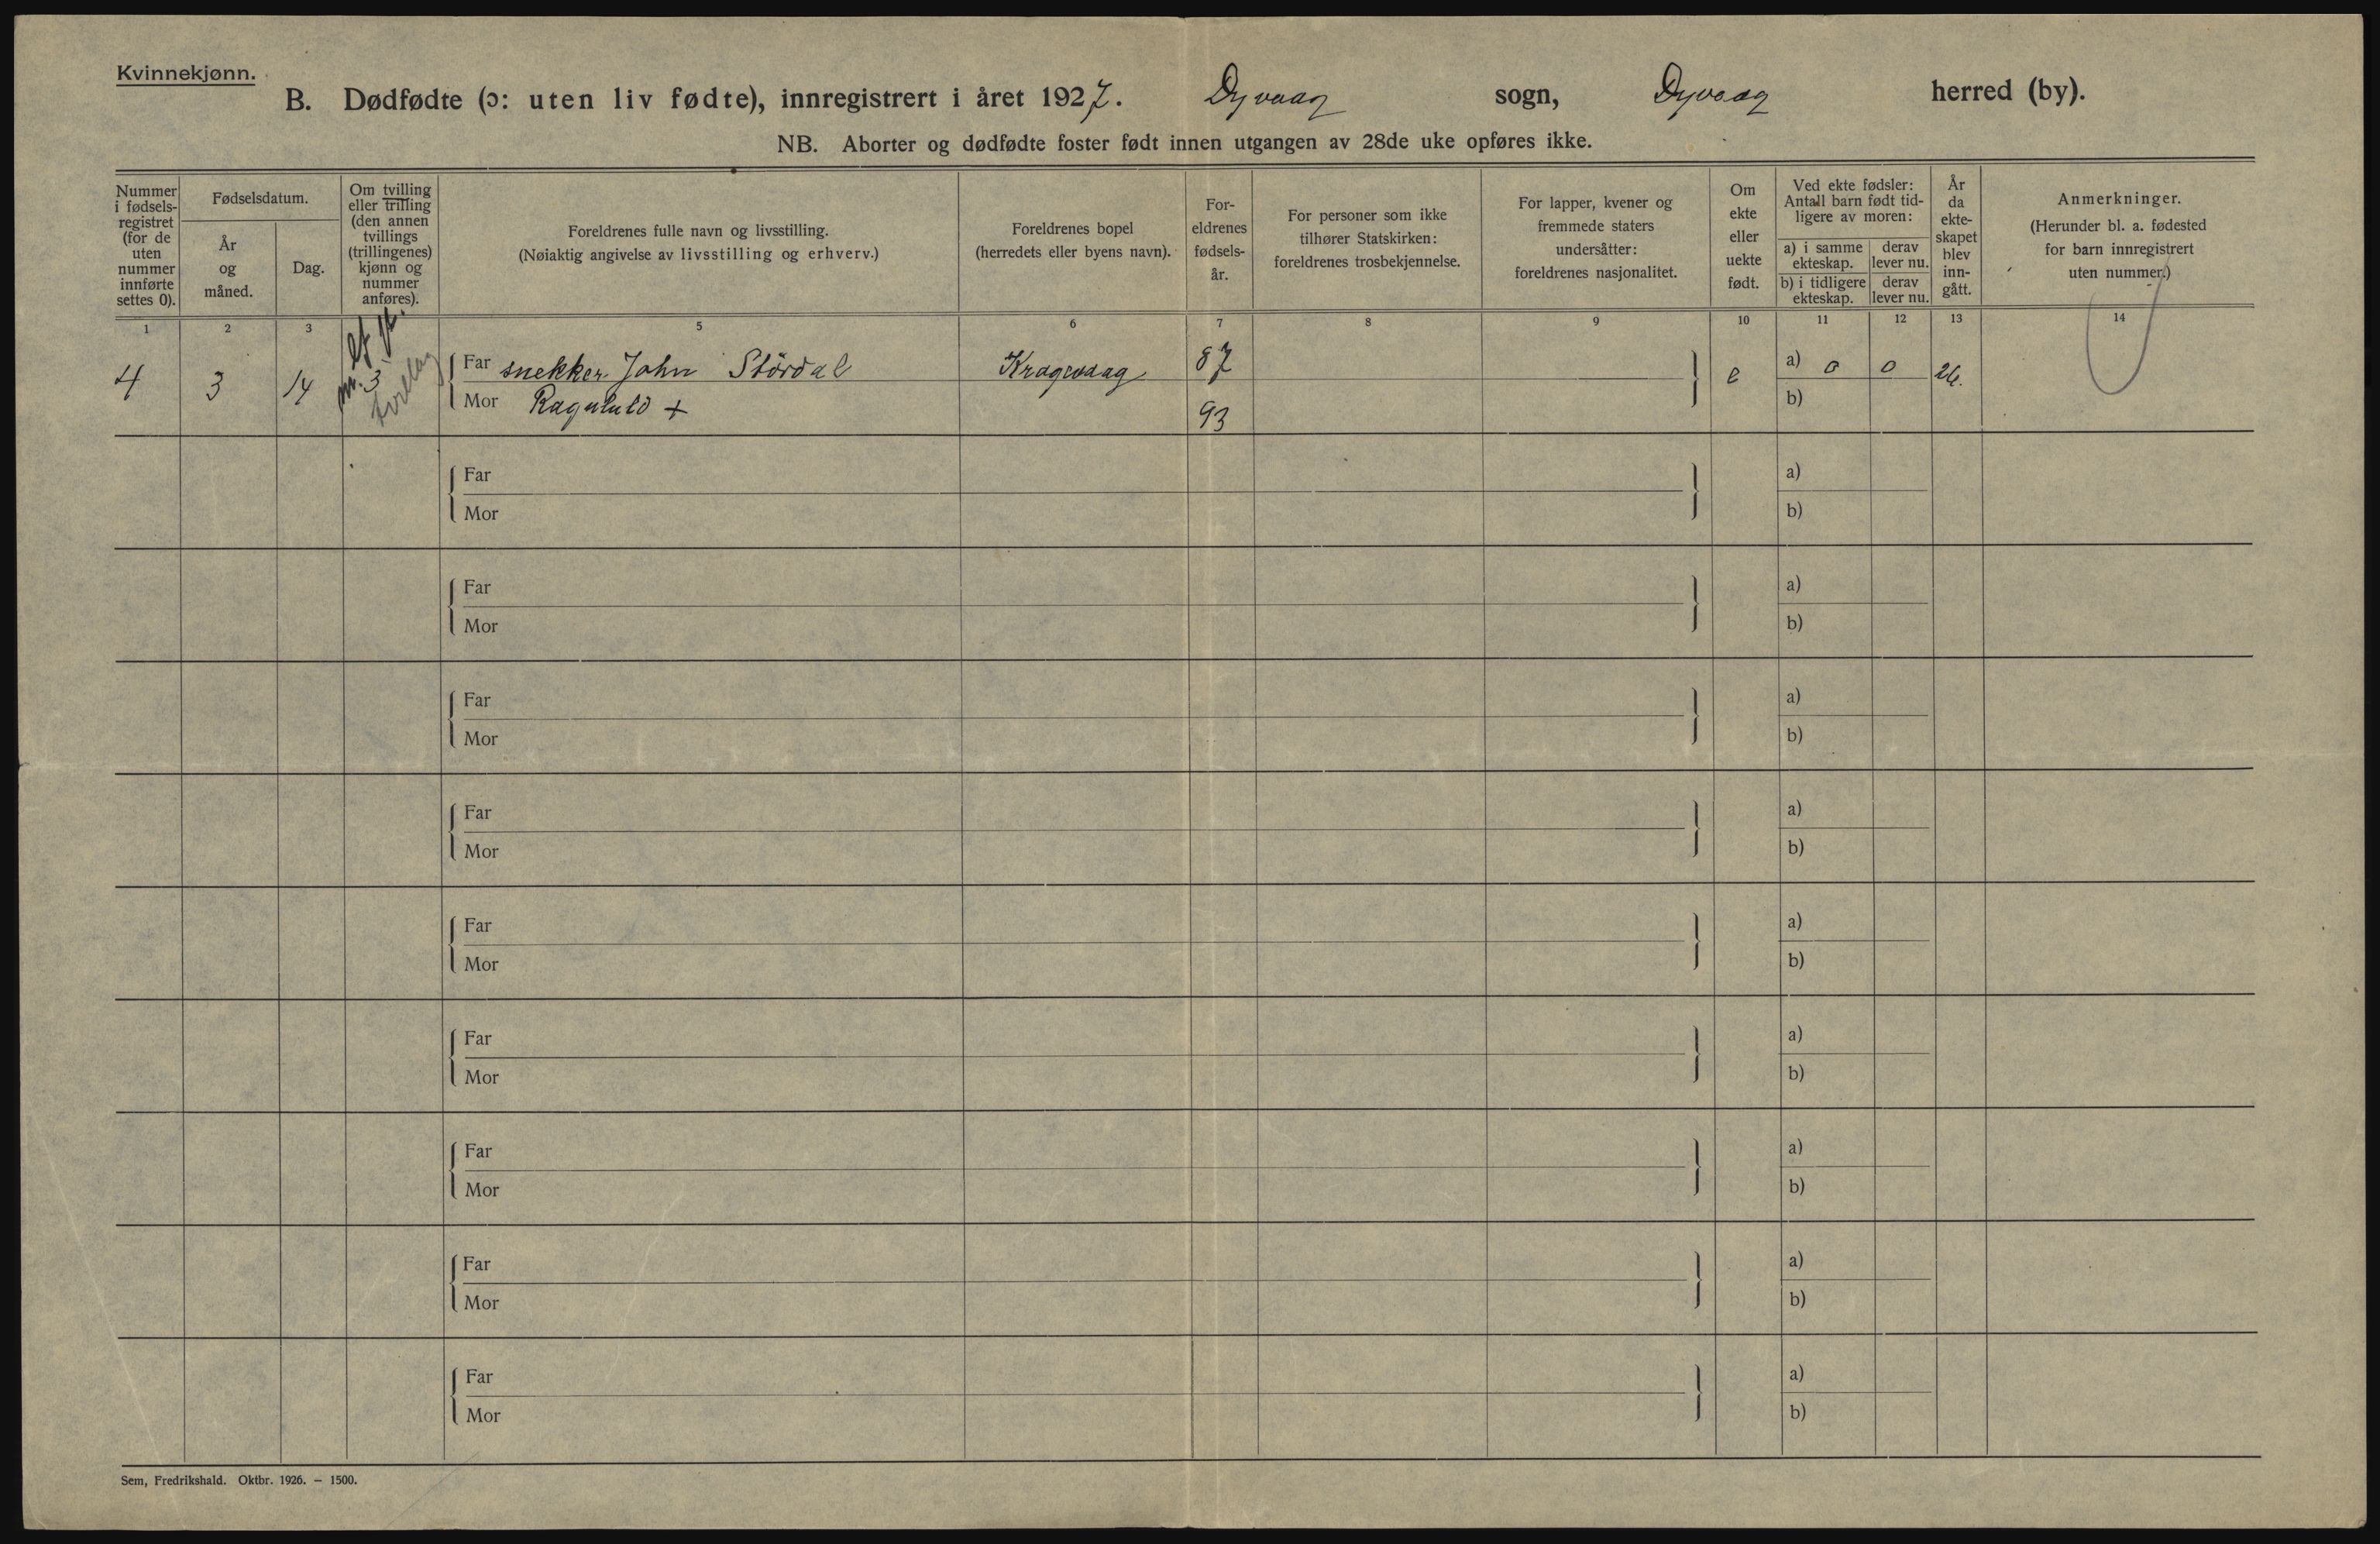 Kvinnekjønn.
B. Dødfødte (ɔ: uten liv fødte), innregistrert i året 1927. Dyvaag sogn, Dyvaag herred (by).
NB. Aborter og dødfødte foster født innen utgangen av 28de uke opføres ikke.
Nummer
i fødsels-
registret
(for de
uten
nummer
innførte
settes 0).
Fødselsdatum.
År
og
måned.
Dag.
Om tvilling
eller trilling
(den annen
tvillings
(trillingenes)
kjønn og
nummer
anføres).
Foreldrenes fulle navn og livsstilling.
(Nøiaktig angivelse av livsstilling og erhverv.)
Foreldrenes bopel
(herredets eller byens navn).
For-
eldrenes
fødsels-
år.
For personer som ikke
tilhører Statskirken:
foreldrenes trosbekjennelse.
For lapper, kvener og
fremmede staters
undersåtter:
foreldrenes nasjonalitet.
Om
ekte
eller
uekte
født.
Ved ekte fødsler:
Antall barn født tid-
ligere av moren:
a) i samme
ekteskap.
derav
lever nu.
b) i tidligere
ekteskap.
derav
lever nu.
År
da
ekte-
skapet
blev
inn-
gått.
Anmerkninger.
(Herunder bl. a. fødested
for barn innregistrert
uten nummer.)
1 2 3 5 6 7 8 9 10 11 12 13 14
4 3 14
nr. 3
Far snekker John Stördal
Mor Ragnhild +
87
93
e
a) 0 0
b)
26.
Far
Mor
a)
b)
Far
Mor
a)
b)
Far
Mor
a)
b)
Far
Mor
a)
b)
Far
Mor
a)
b)
Far
Mor
a)
b)
Far
Mor
a)
b)
Far
Mor
a)
b)
Far
Mor
a)
b)
Sem, Fredrikshald. Oktbr. 1926. — 1500.